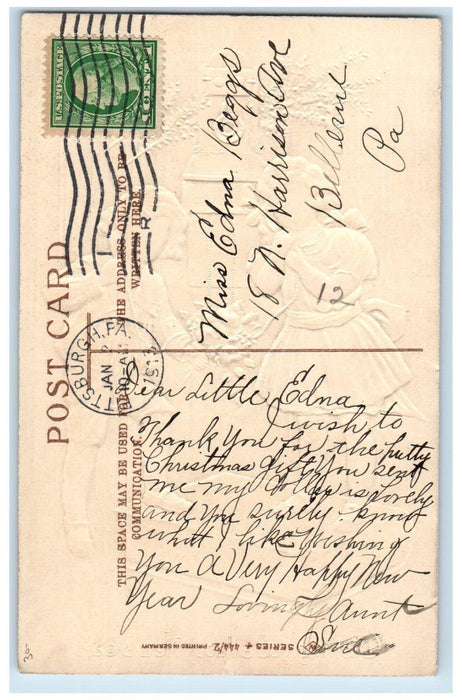 U.S. POSTAGE
1 CENT 1
POST CARD
THE ADDRESS ONLY TO BE
WRITTEN HERE.
THIS SPACE MAY BE USED FOR
COMMUNICATION.
PITTSBURGH, PA.
JAN
10-A
1913
Miss Edna Beggs
18 N. Harrison Ave
Bellevue
Pa
12
Dear Little Edna
I wish to
Thank You for the pretty
Christmas gift You sent
me my is lovely
and you surely know
what I like Wishing
You A Very Happy New
Year Loving Aunt
Sue
SERIES 444/2 PRINTED IN GERMANY
30-